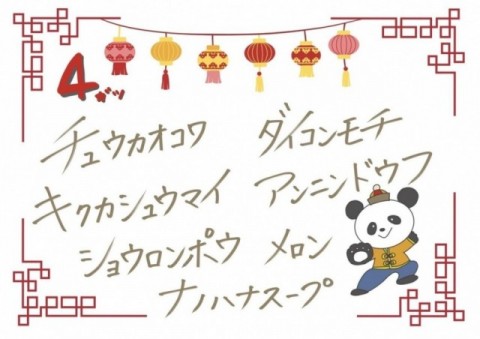 4ガツ
チュウカオコワ ダイコンモチ
キクカシュウマイ アンニンドウフ
ショウロンポウ メロン
ナノハナスープ